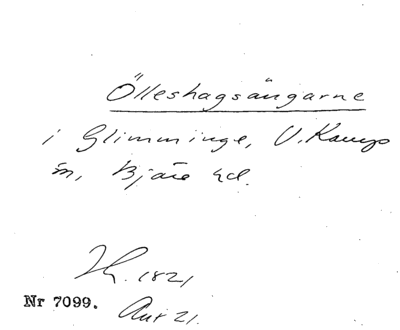 Ölleshagsängarne
i Glimminge, V. Karups
sn, Bjäre hd.
Lh. 1821
Nr 7099. Akt 21.